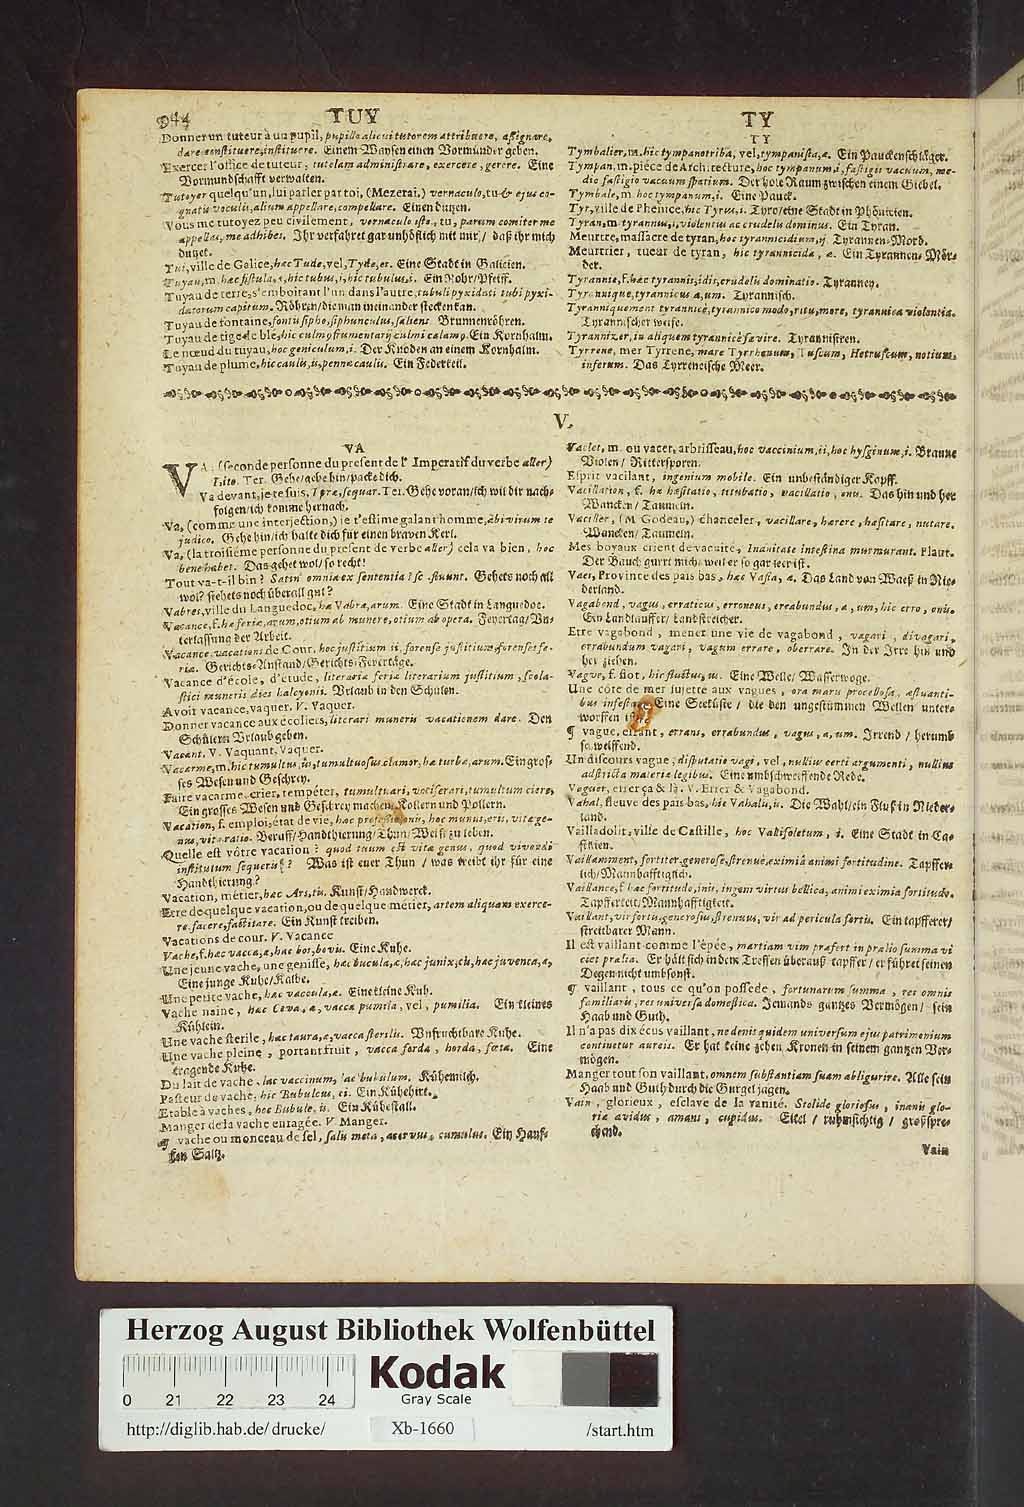 944 TUY TY
Donner un tuteur à un pupil, pupillo alicui tutorem attribuere, assignare,
dare constituere, instituere. Einem Waysen einen Vormünder geben.
Exercer l'office de tuteur, tutelam administrare, exercere, gerere. Eine
Vormundschafft verwalten.
Tutoyer quelqu'un, lui parler par toi, (Mezerai.) vernaculo, tu & ejus co-
gnatis voculis, alium appellare, compellare. Einen dutzen.
Vous me tutoyez peu civilement, vernaculo isto, tu, parum comiter me
appellas, me adhibes. Ihr verfahret gar unhöflich mit mir / daß ihr mich
dutzet.
Tui, ville de Galice, hæc Tude, vel, Tyde, es. Eine Stadt in Galicien.
Tuyau, m. hæc fistula, æ, hic tubus, i, hic tubulus, i. Ein Rohr / Pfeiff.
Tuyau de terre, s'emboitant l'un dans l'autre, tubuli pyxidati tubi pyxi-
datorum capitum. Röhren / die man in einander stecken kan.
Tuyau de fontaine, fontis sipho, siphunculus, saliens. Brunnenröhren.
Tuyau de tige de blé, hic culmus frumentarij culmi calamus. Ein Kornhalm.
Le nœud du tuyau, hoc geniculum, i. Der Knoden an einem Kornhalm.
Tuyau de plume, hic caulis, is, pennæ caulis. Ein Federkeil.
TY
Tymbalier, m. hic tympanotriba, vel, tympanista, æ. Ein Pauckenschläger.
Tympan, m. piéce de Architecture, hoc tympanum, i, fastigii vacuum, me-
dio fastigio vacuum spatium. Der hole Raum zwischen einem Giebel.
Tymbale, m. hoc tympanum, i. Eine Pauck.
Tyr, ville de Phenice, hic Tyrus, i. Tyro / eine Stadt in Phönicien.
Tyran, m. tyrannus, i, violentus ac crudelis dominus. Ein Tyran.
Meurtre, massacre de tyran, hoc tyrannicidium, ij. Tyrannen-Mord.
Meurtrier, tueur de tyran, hic tyrannicida, æ. Ein Tyrannen-Mör-
der.
Tyrannie, f. hæc tyrannis, idis, crudelis dominatio. Tyranney.
Tyrannique, tyrannicus a, um. Tyrannisch.
Tyranniquement tyrannicè, tyrannico modo, ritu, more, tyrannica violentia.
Tyrannischer weise.
Tyrannizer, in aliquem tyrannicè sævire. Tyrannisiren.
Tyrrene, mer Tyrrene, mare Tyrrhenum, Tuscum, Hetruscum, notium,
inferum. Das Tyrreneische Meer.
V.
VA
VA, (seconde personne du present de l'Imperatif du verbe aller)
I, ito. Ter. Gehe / gehe hin / packe dich.
Va devant, je te suis, I præ, sequar. Ter. Gehe voran / ich wil dir nach-
folgen / ich komme hernach.
Va, (comme une interjection,) je t'estime galant homme, abi virum te
judico. Gehe hin / ich halte dich für einen braven Kerl.
Va, (la troisiéme personne du present de verbe aller) cela va bien, hoc
bene habet. Das gehet wol / so recht!
Tout va-t-il bin? Satin' omnia ex sententia? se fluunt. Gehets noch all
wol? stehets noch überall gut?
Vabres, ville du Languedoc, hæ Vabræ, arum. Eine Stadt in Languedoc.
Vacance, f. hæ feriæ, arum, otium ab munere, otium ab opera. Feyertag / Un-
terlassung der Arbeit.
Vacance, vacations de Cour. hoc justitium ii, forense justitium, forenses fe-
riæ. Gerichts-Anstand / Gerichts-Feyertäge.
Vacance d'école, d'étude, literariæ feriæ literarium justitium, schola-
stici muneris dies halcyonii. Urlaub in den Schulen.
Avoir vacance, vaquer. V. Vaquer.
Donner vacance aux écoliers, literarii muneris vacationem dare. Den
Schülern Urlaub geben.
Vacant. V. Vaquant, Vaquer.
Vacarme, m. hic tumultus, ûs, tumultuosus clamor, hæ turbæ, arum. Ein gros-
ses Wesen und Geschrey.
Faire vacarme, crier, tempéter, tumultuari, vociferari, tumultum ciere,
Ein grosses Wesen und Geschrey machen / Kollern und Pollern.
Vacation, f. emploi, état de vie, hæc professio, onis, hoc munus, eris, vitæ ge-
nus, vitæ ratio. Beruff / Handthierung / Thun / Weiß zu leben.
Quelle est vôtre vacation? quod tuum est vitæ genus, quod vivendi
institutum sequeris? Was ist euer Thun / was treibt ihr für eine
Handthierung?
Vacation, métier, hæc Ars, tis. Kunst / Handwerck.
Etre de quelque vacation, ou de quelque métier, artem aliquam exerce-
re, facere, factitare. Ein Kunst treiben.
Vacations de cour. V. Vacance
Vache, f. hæc vacca, æ, hæc bos, bovis. Eine Kuhe.
Une jeune vache, une genisse, hæc bucula, æ, hæc junix, cis, hæc juvenca, æ,
Eine junge Kuhe / Kalbe.
Une petite vache, hæc vaccula, æ. Eine kleine Kuh.
Vache naine, hæc Ceva, æ, vacca pumila, vel, pumilia. Ein kleines
Kühlein.
Une vache sterile, hæc taura, æ, vacca sterilis. Unfruchtbare Kuhe.
Une vache pleine, portant fruit, vacca forda, horda, fœta. Eine
tragende Kuhe.
Du lait de vache, lac vaccinum, lac bubulum. Kühemilch.
Pasteur de vache, hic Bubulcus, ci. Ein Kühehirt.
Etable à vaches, hoc Bubule, is. Ein Kühestall.
Manger de la vache enragée. V. Manger.
¶ vache ou monceau de sel, salis meta, acervus, cumulus. Ein Hauf-
fen Saltz.
Vaciet, m. ou vacet, arbrisseau, hoc vaccinium, ii, hoc hysginum, i. Braune
Violen / Rittersporen.
Esprit vacilant, ingenium mobile. Ein unbeständiger Kopff.
Vacillation, f. hæ hæsitatio, titubatio, vacillatio, onis. Das hin und her
Wancken / Taumeln.
Vaciller, (M Godeau,) chanceler, vacillare, hærere, hæsitare, nutare.
Wancken / Taumeln.
Mes boyaux crient de vacuité, Inanitate intestina murmurant. Plaut.
Der Bauch gurrt mich / weil er so gar leer ist.
Vaes, Province des païs bas, hæc Vasia, æ. Das Land von Waeß in Nie-
derland.
Vagabond, vagus, erraticus, erroneus, errabundus, a, um, hic erro, onis.
Ein Landlauffer / Landstreicher.
Etre vagabond, mener une vie de vagabond, vagari, divagari,
errabundum vagari, vagum errare, oberrare. In der Irre hin und
her ziehen.
Vague, f. flot, hic fluctus, us. Eine Welle / Wasserwoge.
Une côte de mer sujette aux vagues, ora maris procellosa, æstuanti-
bus infesta. Eine Seeküste / die den ungestümmen Wellen unter-
worffen ist.
¶ vague, errant, errans, errabundus, vagus, a, um. Irrend / herumb
schweiffend.
Un discours vague, disputatio vagi, vel, nullius certi argumenti, nullius
adstricta materiæ legibus. Eine umbschweiffende Rede.
Vaguer, errer ça & là. V. Errer & Vagabond.
Vahal, fleuve des païs bas, hic Vahalis, is. Die Wahl / ein Fluß in Nieder-
land.
Vailladolit, ville de Castille, hoc Vallisoletum, i. Eine Stadt in Ca-
stilien.
Vaillamment, fortiter, generose, strenue, eximiâ animi fortitudine. Tapffer-
lich / Mannhafftiglich.
Vaillance, f. hæc fortitudo, inis, ingens virtus bellica, animi eximia fortitudo.
Tapfferkeit / Mannhafftigkeit.
Vaillant, vir fortis, generosus, strenuus, vir ad pericula fortis. Ein tapfferer /
streitbarer Mann.
Il est vaillant comme l'épée, martiam vim præfert in prælio summa vi
ciet prælia. Er hält sich in dem Treffen überauß tapffer / er führet seinen
Degen nicht umbsonst.
¶ vaillant, tous ce qu'on possede, fortunarum summa, res omnis
familiaris, res universa domestica. Jemands gantzes Vermögen / sein
Haab und Guth.
Il n'a pas dix écus vaillant, ne denis quidem universum ejus patrimonium
continetur aureis. Er hat keine zehen Kronen in seinem gantzen Ver-
mögen.
Manger tout son vaillant, omnem substantiam suam abligurire. Alle sein
Haab und Guth durch die Gurgel jagen.
Vain, glorieux, esclave de la vanité. Stolidè gloriosus, inanis glo-
riæ avidus, amans, cupidus. Eitel / ruhmsichtig / großspre-
chend.
Vain
Herzog August Bibliothek Wolfenbüttel
0 21 22 23 24
Kodak
Gray Scale
http://diglib.hab.de/drucke/ Xb-1660 /start.htm